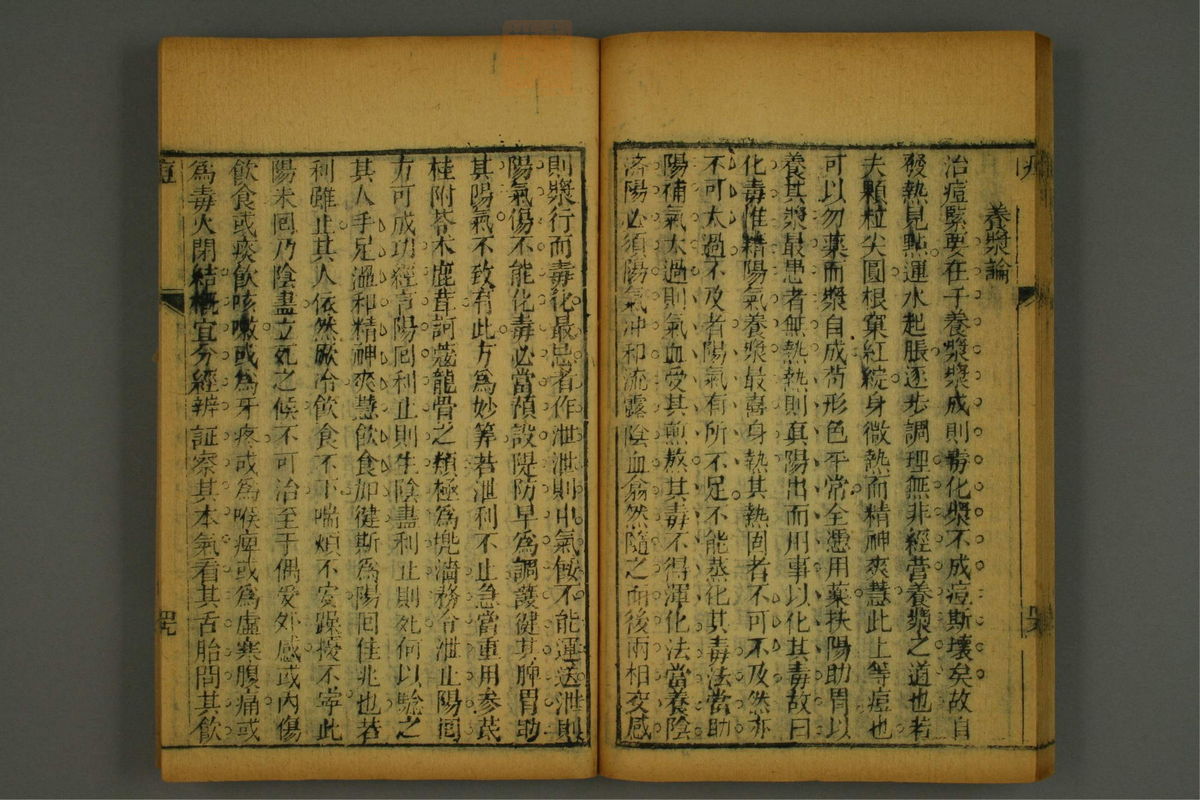 養漿論
治痘緊要在于養漿漿成則毒化漿不成痘斯壞矣故自
發熱見點運水起脹逐步調理無非經營養漿之道也若
夫顆粒尖圓根窠紅綻身微熱而精神爽慧此上等痘也
可以勿藥而漿自成苟形色平常全憑用藥扶陽助胃以
養其漿最患者無熱熱則真陽出而用事以化其毒故曰
化毒惟精陽氣養漿最喜身熱其熱固者不可不及然亦
不可太過不及者陽氣有所不足不能蒸化其毒法當助
陽補氣太過則氣血受其煎熬其毒不得渾化法當養陰
濟陽必須陽氣冲和流露陰血翕然隨之而後兩相交感
則漿行而毒化最忌者作泄泄則中氣餒不能運送泄則
陽氣傷不能化毒必當預設隄防早為調護健其脾胃助
其陽氣不致有此方為妙筭若泄利不止急當重用參茋
桂附苓朮鹿茸訶蔻龍骨之類極為兜濇務令泄止陽囘
方可成功經言陽囘利止則生陰盡利止則死何以驗之
其人手足溫和精神爽慧飲食加健斯為陽囘佳兆也若
利雖止其人依然厥冷飲食不下喘煩不安躁擾不寧此
陽未囘乃陰盡立死之候不可治至于偶受外感或內傷
飲食或痰飲咳嗽或為牙疼或為喉痺或為虛寒腹痛或
為毒火閉結概宜分經辨証察其本氣看其舌胎問其飲